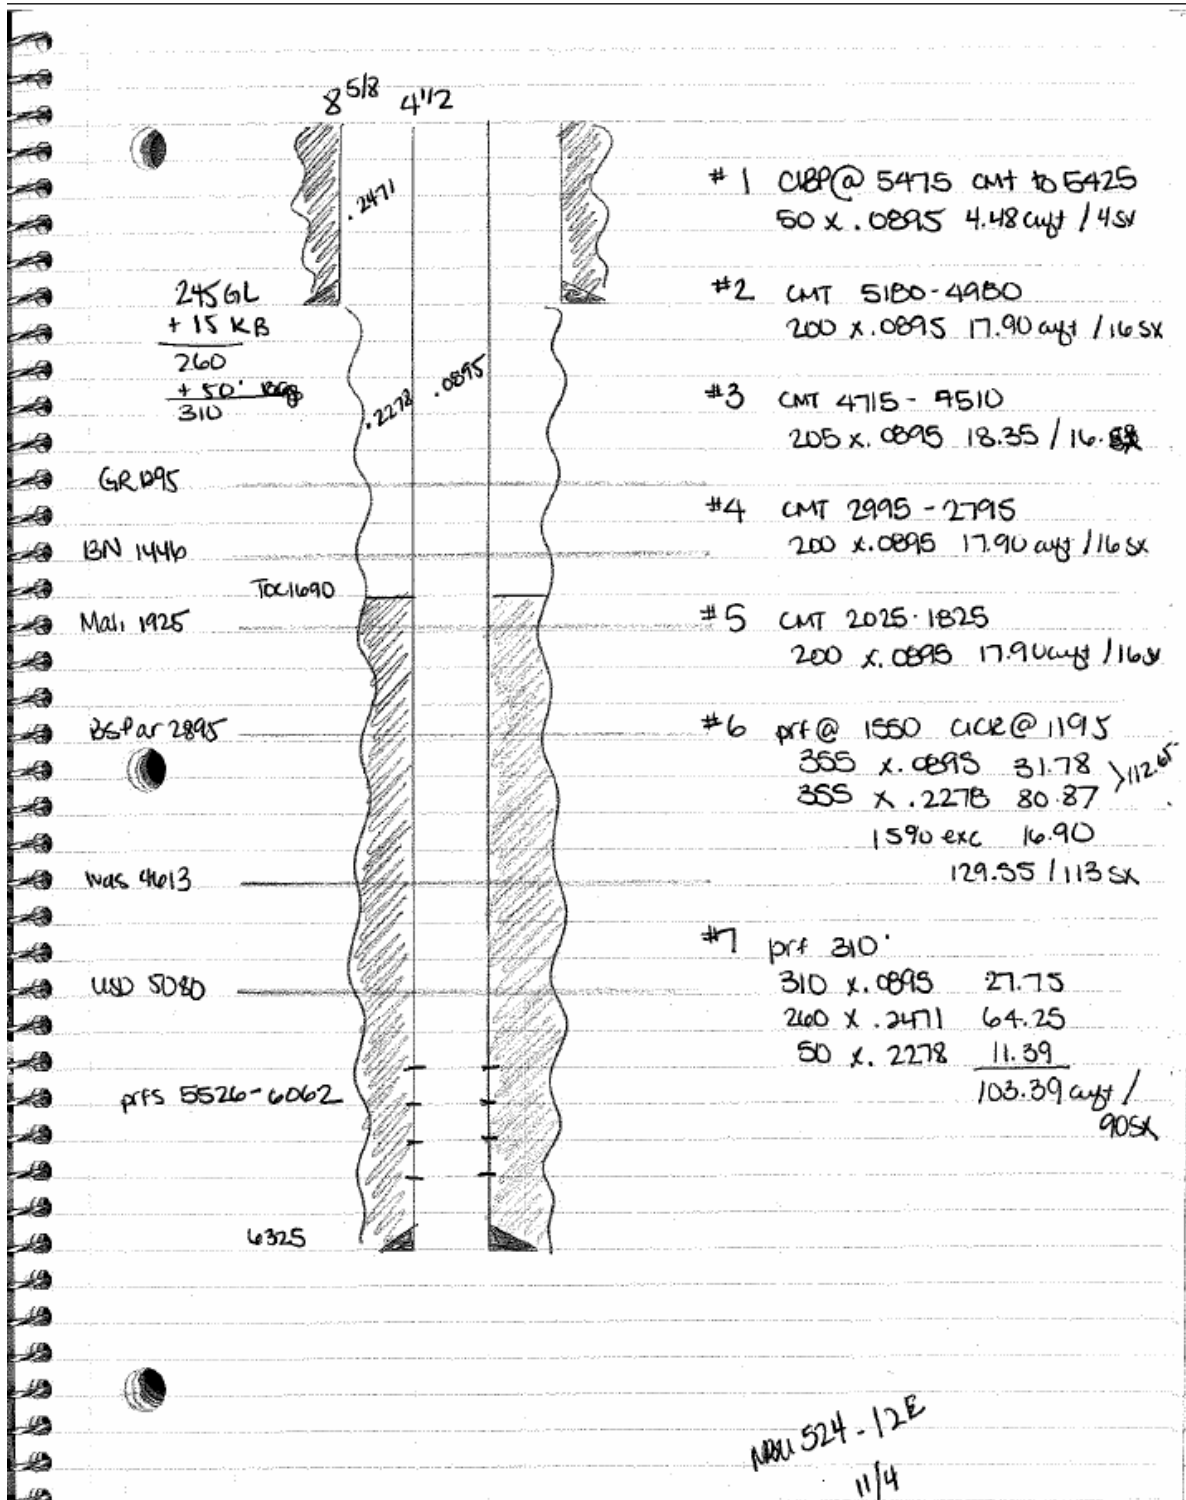 8 5/8 4 1/2
.2471
245 GL
+ 15 KB
260
+ 50'
310
.2278 .0895
GR 1295
BN 1446
TOC 1690
Mah 1925
BsPar 2895
Was 4613
USD 5080
prfs 5526-6062
6325
#1 CIBP@ 5475 CMT to 5425
50 x .0895 4.48 cuft / 4 sx
#2 CMT 5180-4980
200 x .0895 17.90 cuft / 16 SX
#3 CMT 4715 - 4510
205 x .0895 18.35 / 16
#4 CMT 2995 - 2795
200 x .0895 17.90 cuft / 16 sx
#5 CMT 2025-1825
200 x .0895 17.90 cuft / 16 sx
#6 prf @ 1550 CICR@ 1195
355 x .0895 31.78
355 x .2278 80.87 >112.65
15% exc 16.90
129.55 / 113 sx
#7 prf 310'
310 x .0895 27.75
260 x .2471 64.25
50 x .2278 11.39
103.39 cuft /
90 SX
NBU 524-12E
11/4